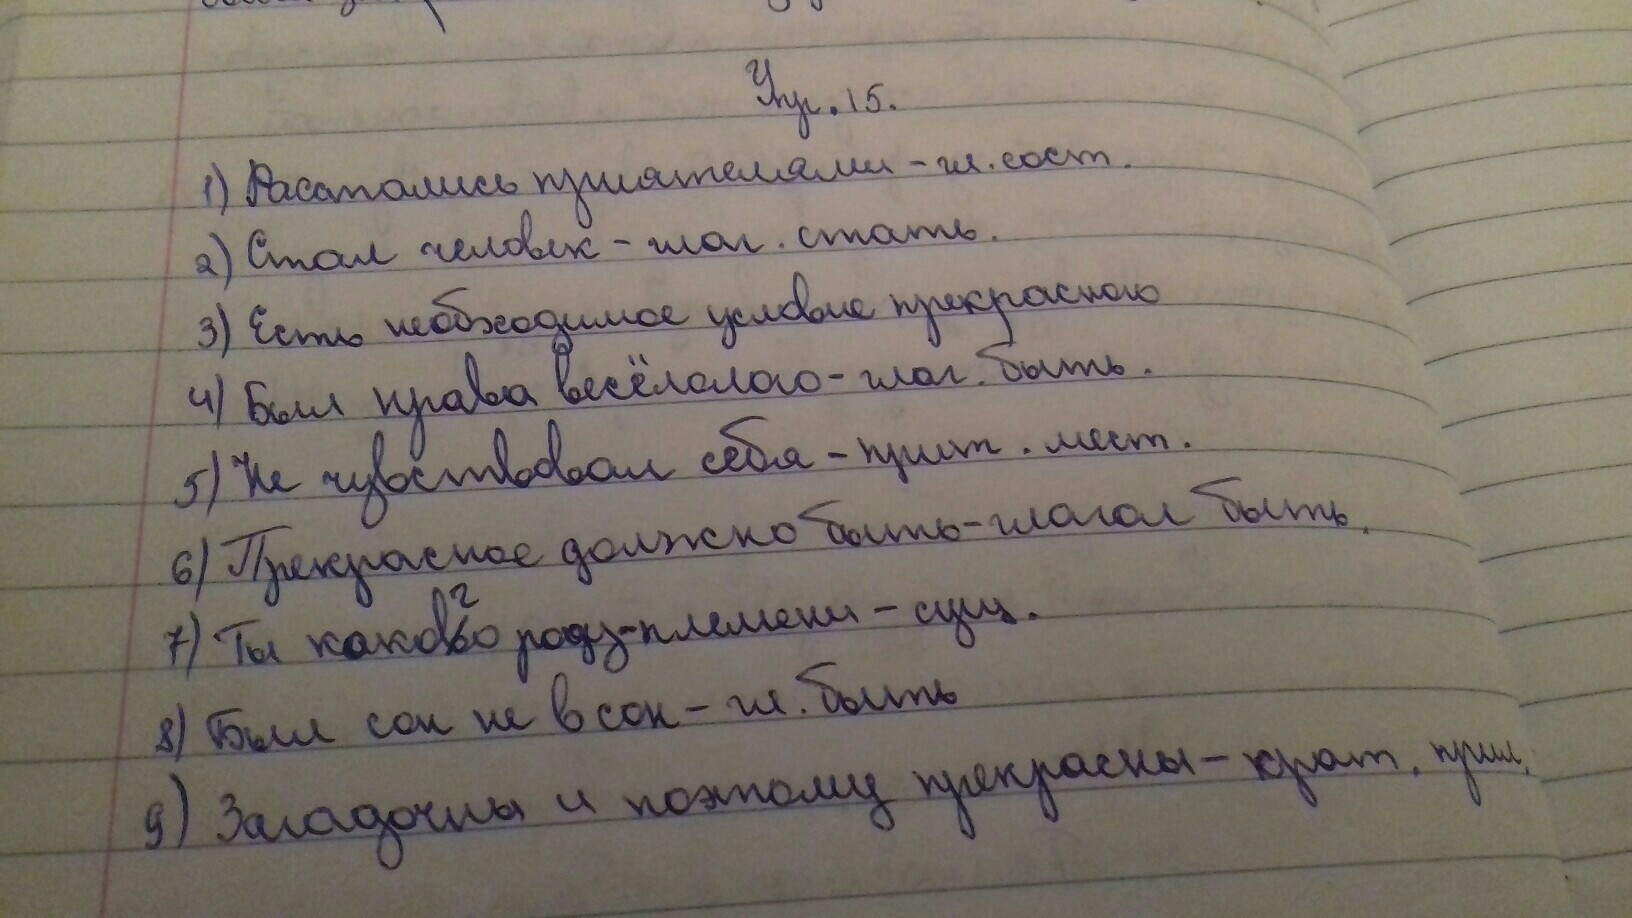 Упр. 15.
1) Расстались приятелями - гл. сост.
2) Стал человек - глаг. стать.
3) Есть необходимое условие прекрасного
4) Был нрава весёлолого - глаг. быть.
5) Не чувствовал себя - прит. мест.
6) Прекрасное должно быть - глагол быть.
7) Ты каковго роду-племени - сущ.
8) Был сон не в сон - гл. быть
9) Загадочны и поэтому прекрасны - крат. прил.